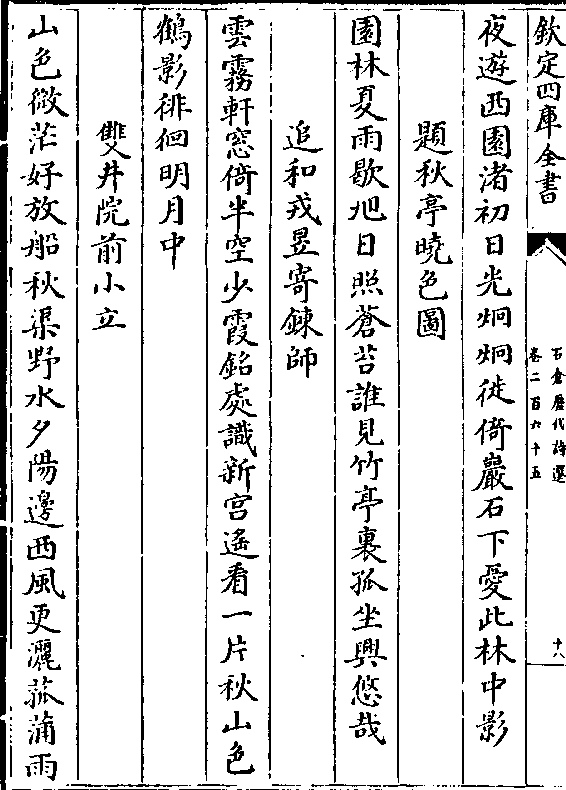 欽定四庫全書
石倉歷代詩選
卷二百六十五
十八
夜遊西園渚初日光炯炯徙倚巖石下愛此林中影
題秋亭曉色圖
園林夏雨歇旭日照蒼苔誰見竹亭裏孤坐興悠哉
追和戎昱寄鍊師
雲霧軒窓倚半空少霞銘處識新宫遙看一片秋山色
鶴影徘徊明月中
雙井院前小立
山色微茫好放船秋渠野水夕陽邊西風更灑菰蒲雨